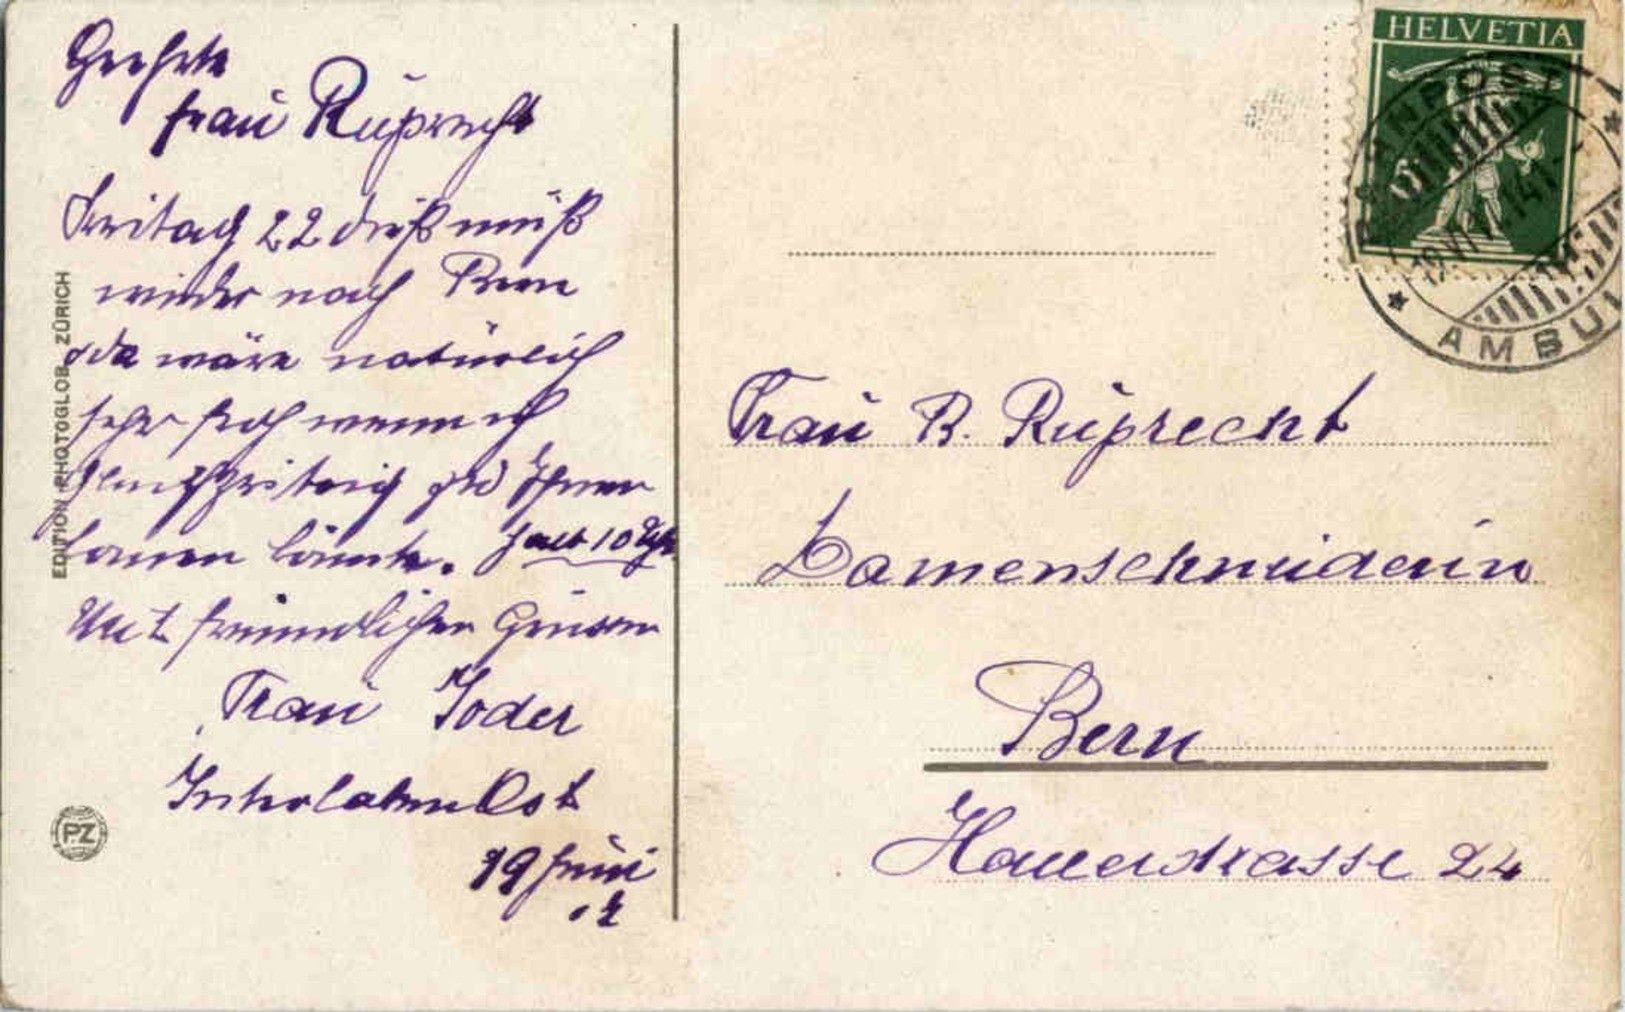 Geehrte
Frau Ruprecht
Freitag 22 dieß muß
wieder nach Bern
da wäre natürlich
sehr froh wenn ich
gleichzeitig zu Ihnen
komen könnte. halb 10 Uhr
Mit freundlichen Grüssen
Frau Yoder
Interlaken Ost
19 Juni
EDITION PHOTOGLOB ZÜRICH
PZ
HELVETIA
BAHNPOST
AMBUL
Frau R. Ruprecht
Damenschneiderin
Bern
24